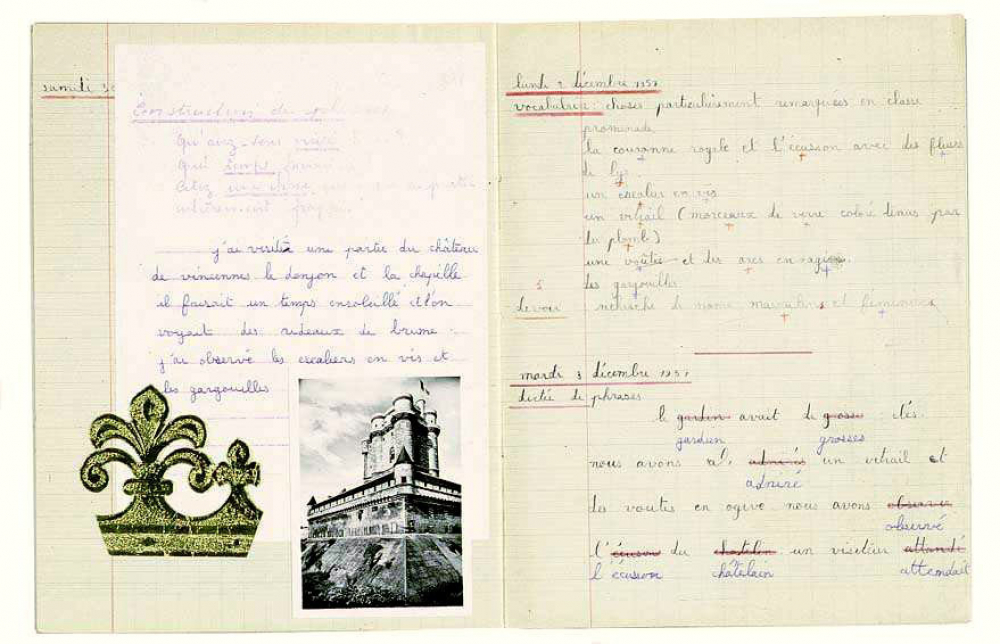 samedi 30
Construction du
Qu'avez-vous visité ?
Quel temps faisait
Citez une chose
j'ai visité une partie du château
de vincennes le donjon et la chapelle
il faisait un temps ensoleillé et l'on
voyait des rideaux de brume
j'ai observé les escaliers en vis et
les gargouilles
lundi 2 décembre 1957
vocabulaire : choses particulièrement remarquées en classe
promenade
la couronne royale et l'écusson avec des fleurs
de lys
un escalier en vis
un vitrail (morceaux de verre coloré tenus par
du plomb)
une voûte et des arcs en ogive
les gargouilles
devoir recherche de noms masculins et féminines
mardi 3 décembre 1957
dictée de phrases
le gardien avait de grosse clés.
gardien grosses
nous avons admirés un vitrail et
admiré
des voutes en ogive nous avons observer
observé
l'écuson du chatelin un visiteur attandé
l'écusson châtelain attendait